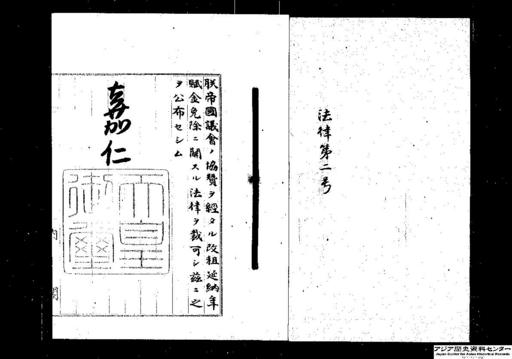 法律第二号
朕帝國議會ノ協賛ヲ經タル改租延納年
賦金免除ニ關スル法律ヲ裁可シ茲ニ之
ヲ公布セシム
嘉仁
天皇
御璽
アジア歴史資料センター
Japan Center for Asian Historical Records